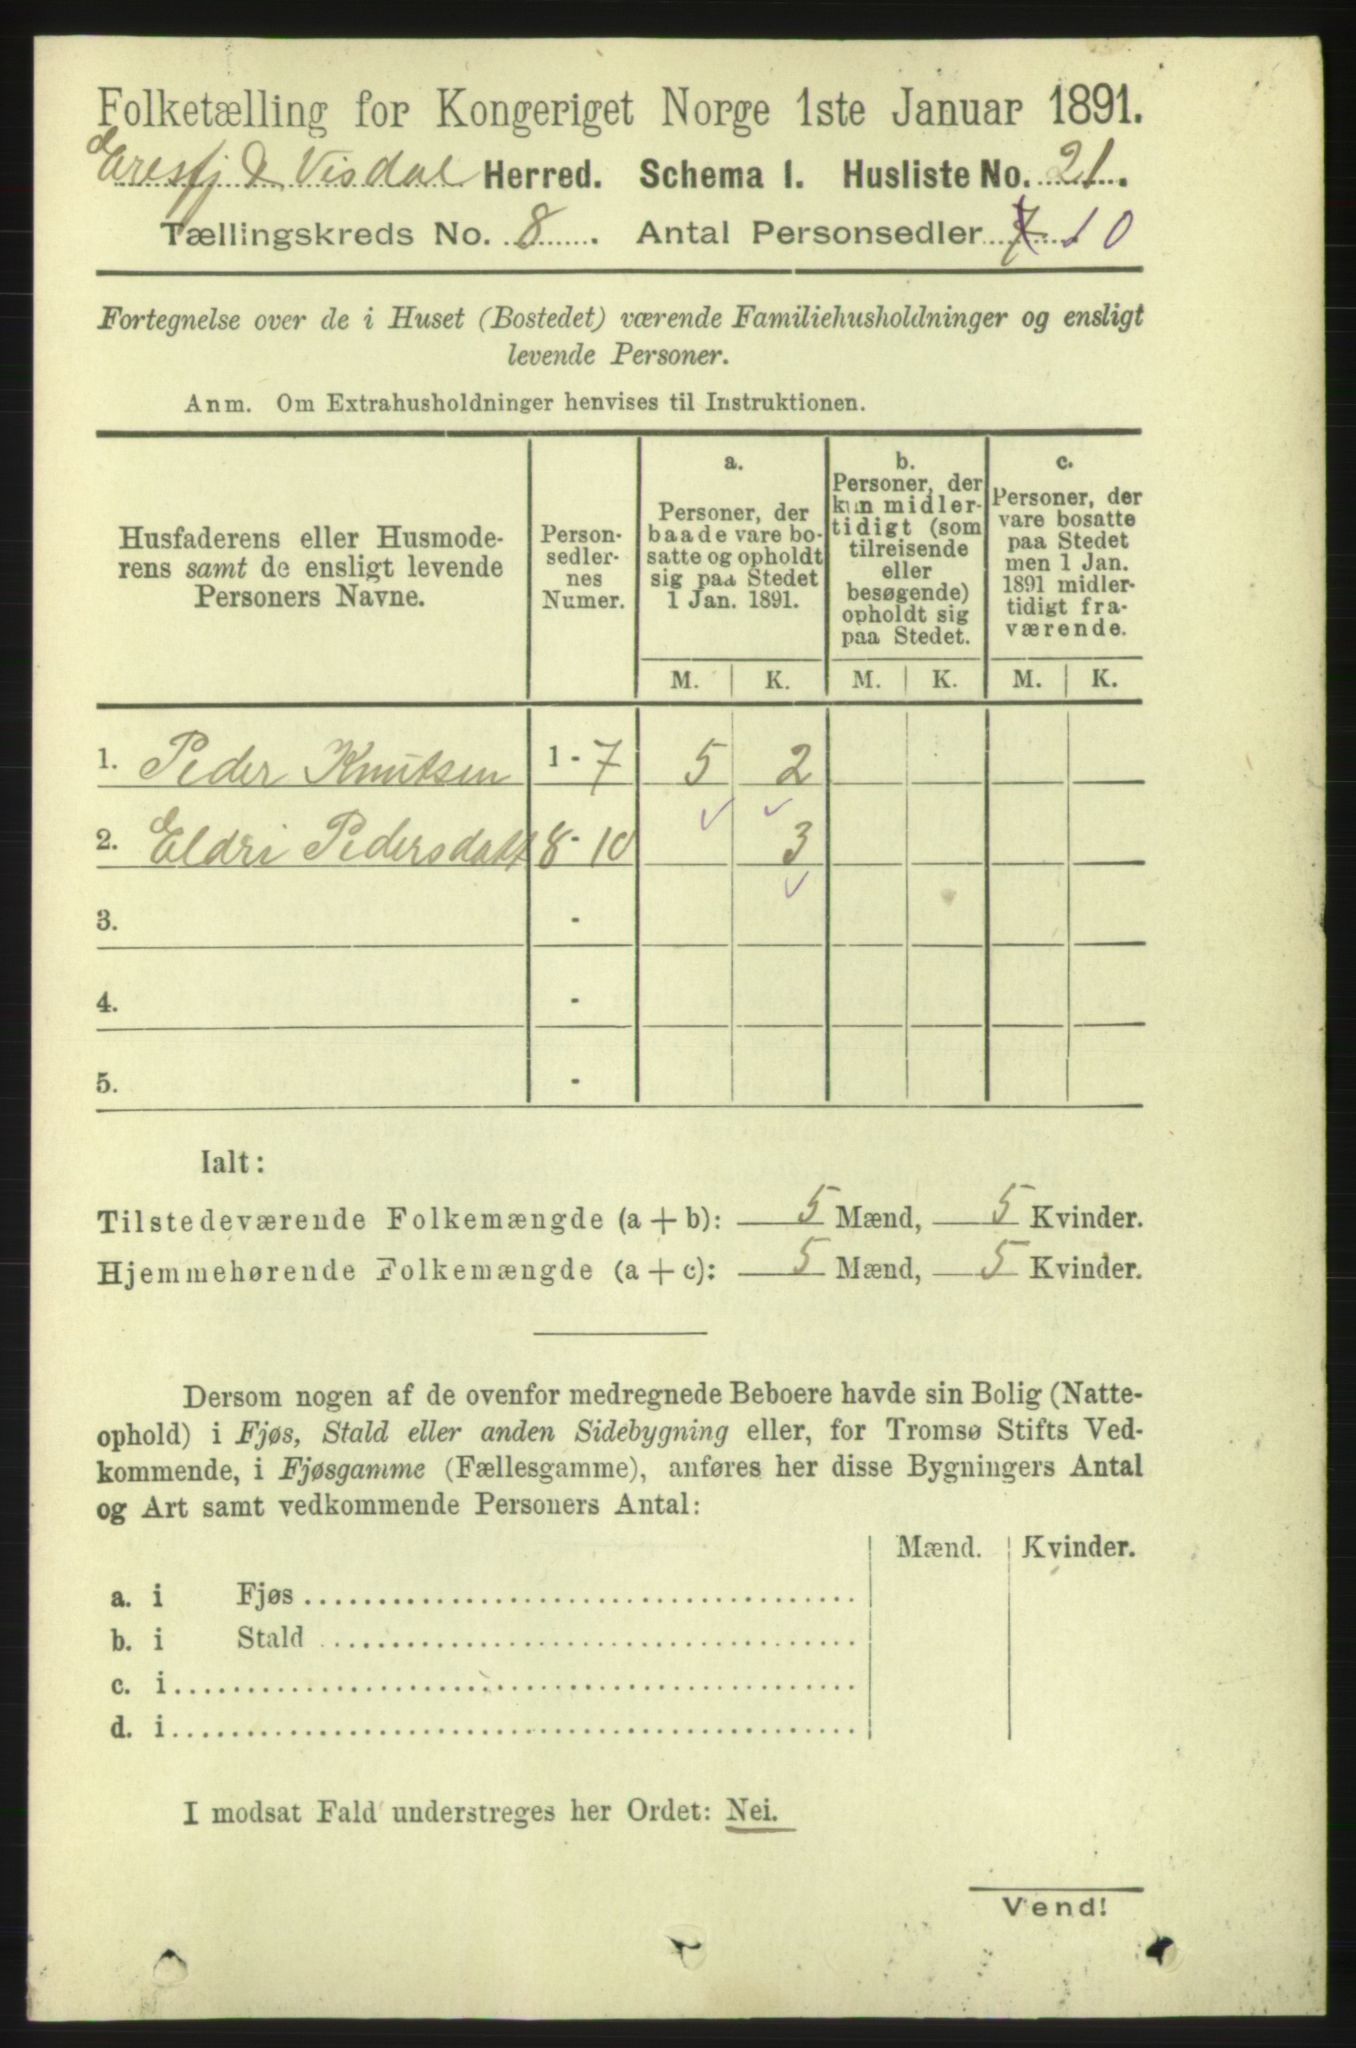 Folketælling for Kongeriget Norge 1ste Januar 1891.
Eresfj & Visdal Herred. Schema 1. Husliste No. 21.
Tællingskreds No. 8. Antal Personsedler 7 10
Fortegnelse over de i Huset (Bostedet) værende Familiehusholdninger og ensligt
levende Personer.
Anm. Om Extrahusholdninger henvises til Instruktionen.
Husfaderens eller Husmode-
rens samt de ensligt levende
Personers Navne.
Person-
sedler-
nes
Numer.
a.
Personer, der
baade vare bo-
satte og opholdt
sig paa Stedet
1 Jan. 1891.
b.
Personer, der
kun midler-
tidigt (som
tilreisende
eller
besøgende)
opholdt sig
paa Stedet.
c.
Personer, der
vare bosatte
paa Stedet
men 1 Jan.
1891 midler-
tidigt fra-
værende.
M. K. M. K. M. K.
1. Peder Knutsen 1 - 7 5 2
2. Eldri Pedersdatt 8 - 10 3
3. -
4. -
5. -
Ialt:
Tilstedeværende Folkemængde (a + b): 5 Mænd, 5 Kvinder.
Hjemmehørende Folkemængde (a + c): 5 Mænd, 5 Kvinder.
Dersom nogen af de ovenfor medregnede Beboere havde sin Bolig (Natte-
ophold) i Fjøs, Stald eller anden Sidebygning eller, for Tromsø Stifts Ved-
kommende, i Fjøsgamme (Fællesgamme), anføres her disse Bygningers Antal
og Art samt vedkommende Personers Antal:
Mænd. Kvinder.
a. i Fjøs
b. i Stald
c. i
d. i
I modsat Fald understreges her Ordet: Nei.
Vend!